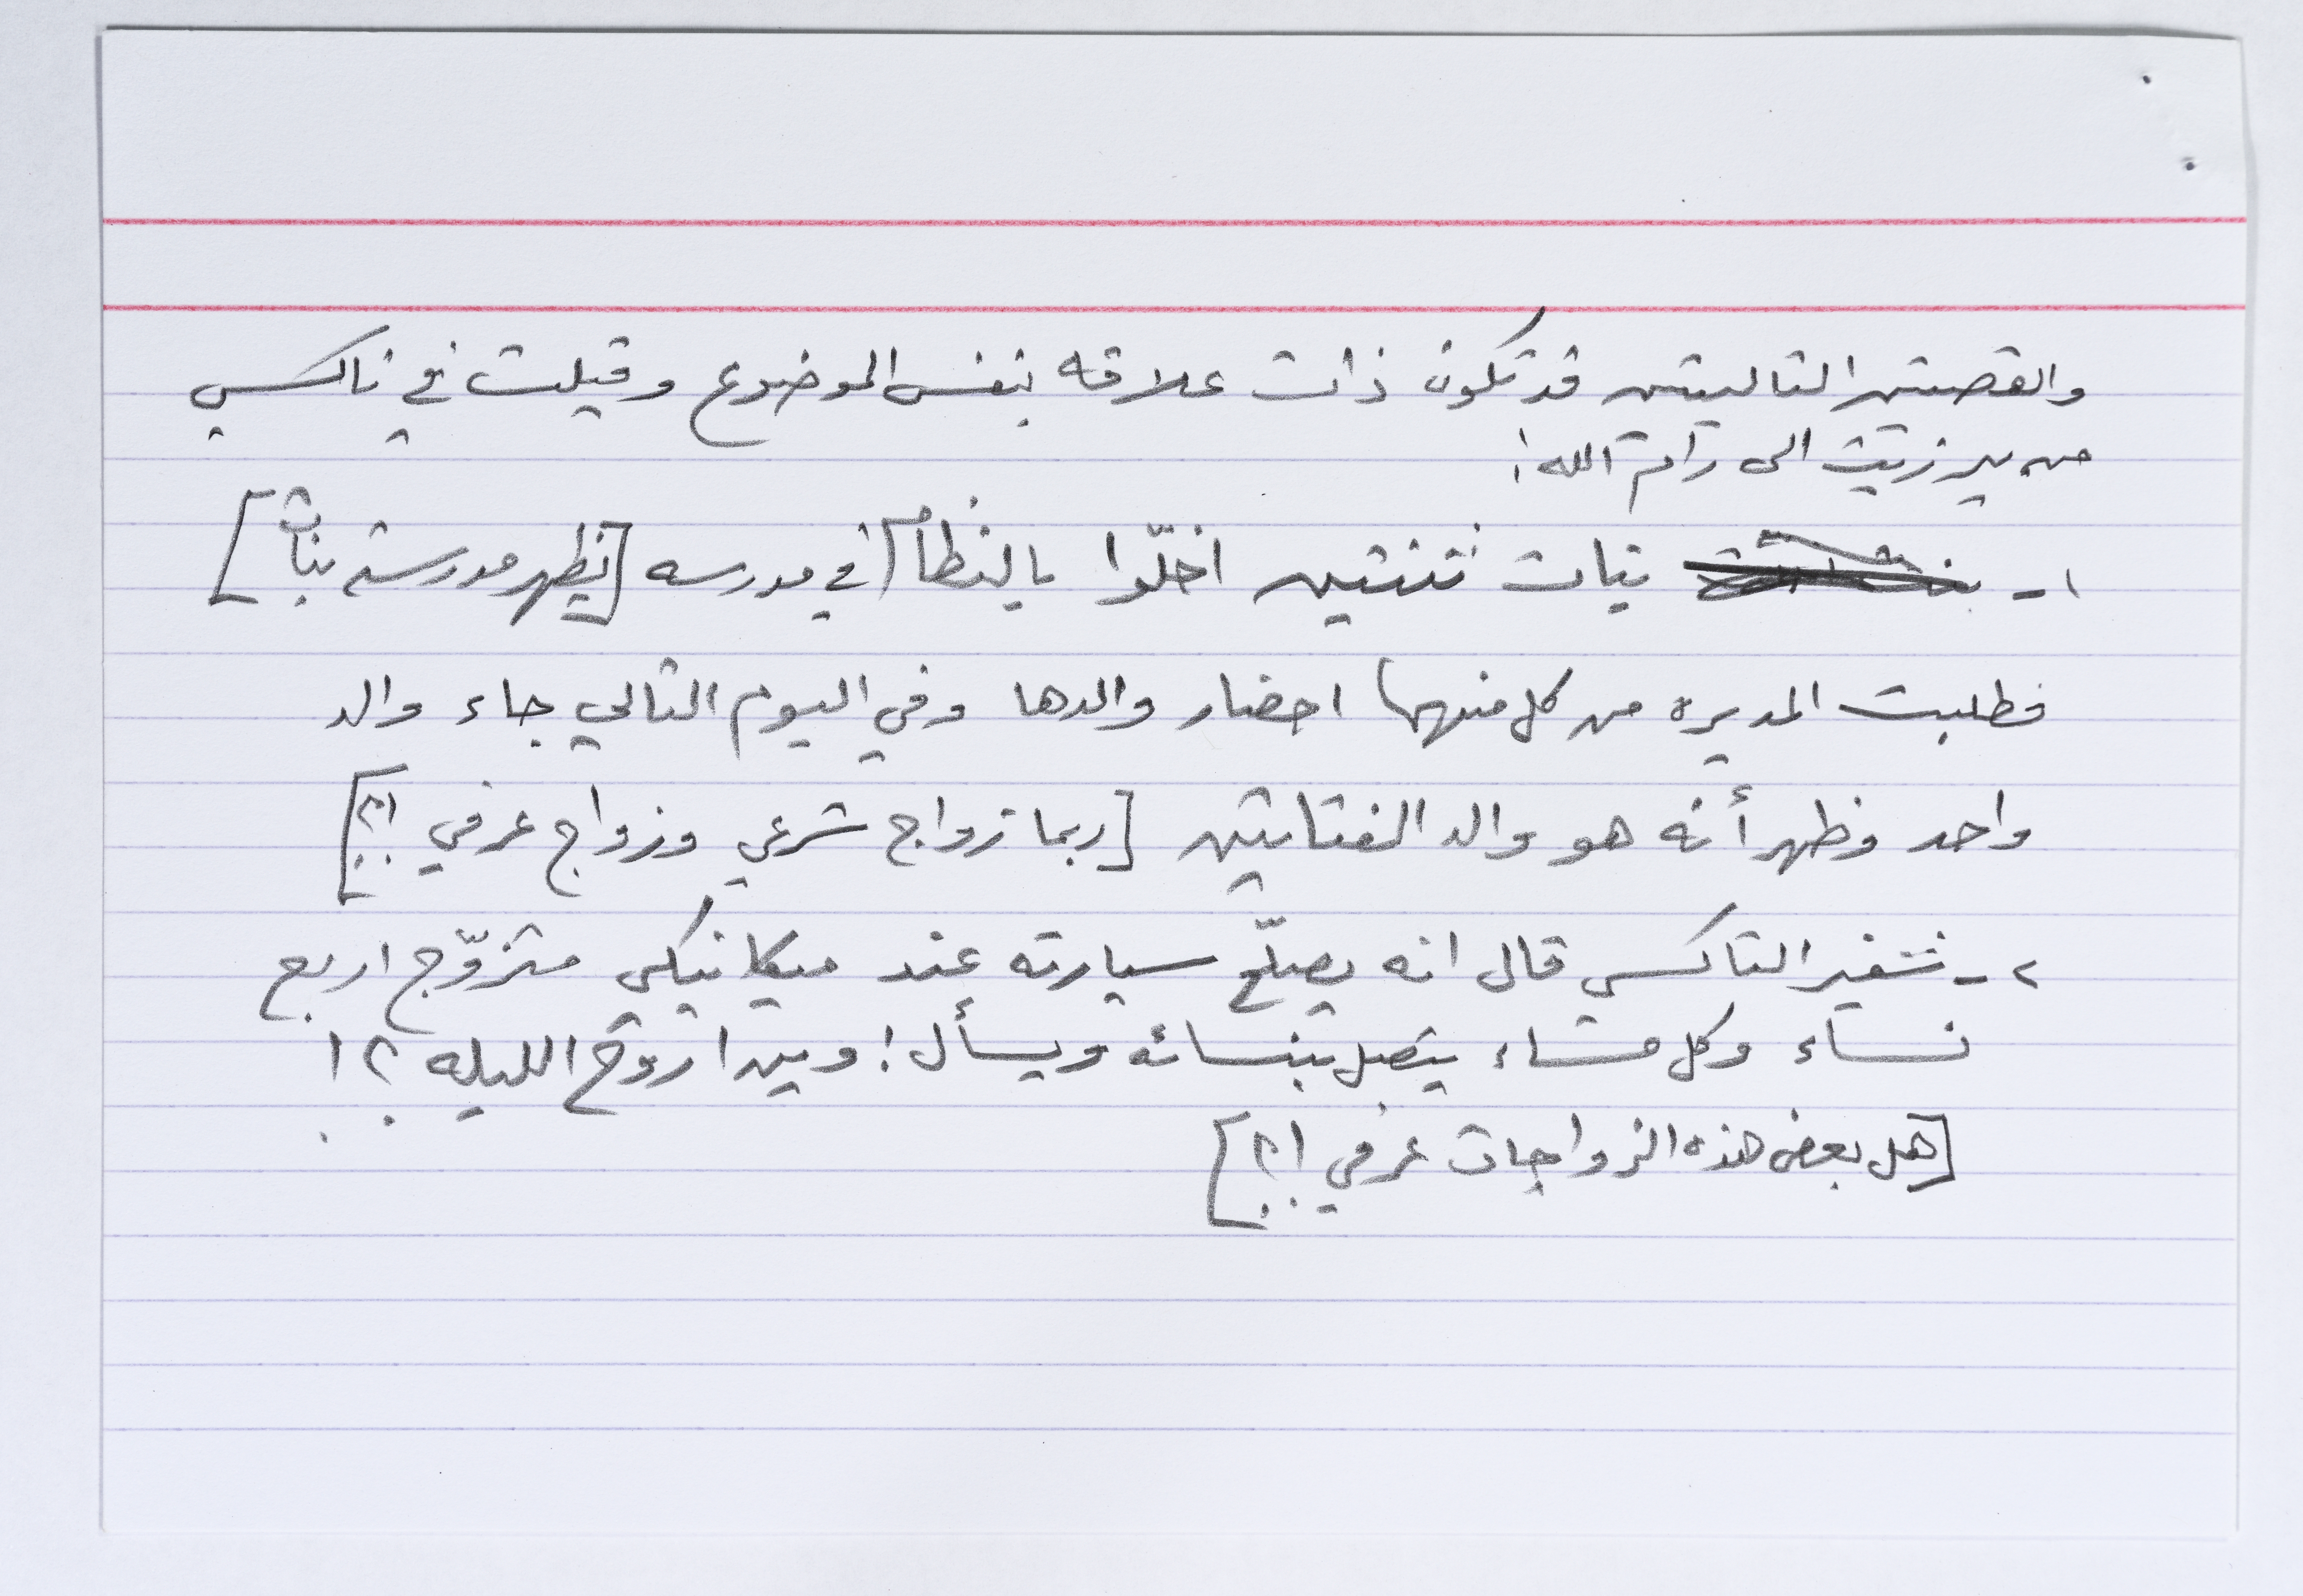 والقصتين التاليتين قد تكون ذات علاقه بنفس الموضوع وقيلت في تاكسي
من بيرزيت الى رام الله:
١- بنات ثنتين اخلّوا بالنظام في مدرسه [يظهر مدرسة بنات]
فطلبت المديره من كل منهما احضار والدها وفي اليوم التالي جاء والد
واحد وظهر أنه هو والد الفتاتين [ربما زواج شرعي وزواج عرفي ؟!]
٢- شفير التاكسي قال انه يصلّح سيارته عند ميكانيكي متزوّج اربع
نساء وكل مساء يتصل بنسائه ويسأل: وين اروّح الليله ؟!
[هل بعض هذه الزواجات عرفي ؟!]